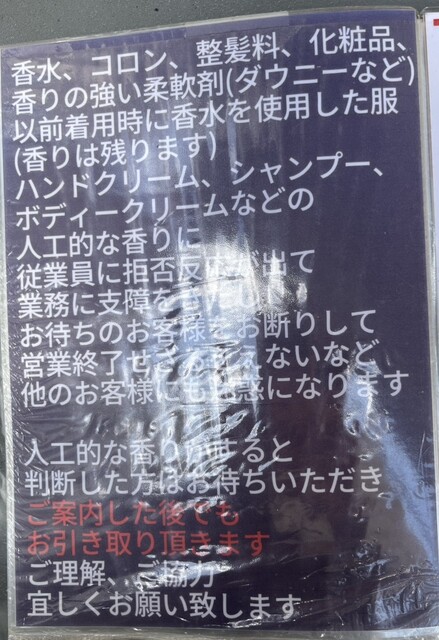 香水、コロン、整髪料、化粧品、
香りの強い柔軟剤(ダウニーなど)
以前着用時に香水を使用した服
(香りは残ります)
ハンドクリーム、シャンプー、
ボディークリームなどの
人工的な香りに
従業員に拒否反応が出て
業務に支障を
お待ちのお客様をお断りして
営業終了せざるをえないなど
他のお客様にも迷惑になります
人工的な香りがすると
判断した方はお待ちいただき
ご案内した後でも
お引き取り頂きます
ご理解、ご協力
宜しくお願い致します